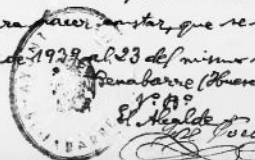 ra hacer constar, que se
de 1939 al 23 del mismo
Benabarre (Hues
Vº Bº
El Alcalde